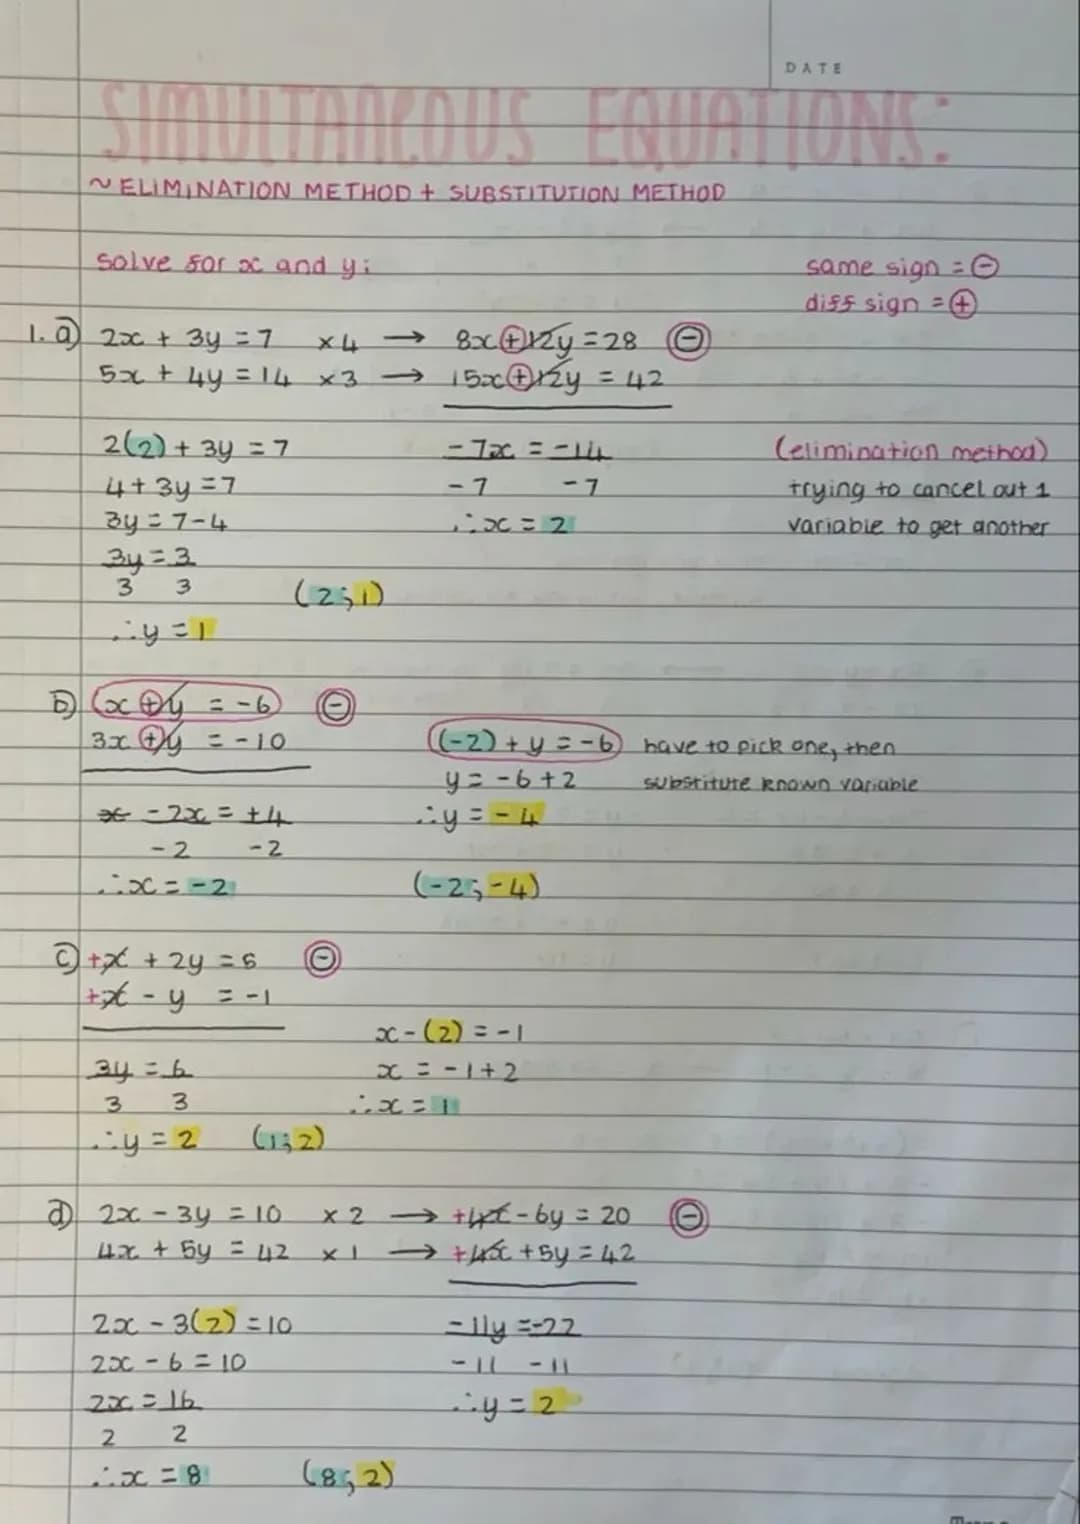 DATE
SIMULTANEOUS EQUATIONS:
~ ELIMINATION METHOD + SUBSTITUTION METHOD
solve for x and y:
same sign = ⊖
diff sign = ⊕
1. a) 2x + 3y = 7 ×4 → 8x ⊕ 12y = 28 ⊖
5x + 4y = 14 ×3 → 15x ⊕ 12y = 42
2(2) + 3y = 7 -7x = -14 (elimination method)
4 + 3y = 7 -7 -7 trying to cancel out 1
3y = 7-4 ∴x = 2 variable to get another
3y = 3
3 3 (2;1)
∴y = 1
b) x ⊕ y = -6 ⊖
3x ⊕ y = -10 (-2) + y = -6 have to pick one, then
y = -6+2 substitute known variable
-2x = +4 ∴y = -4
-2 -2
∴x = -2 (-2;-4)
c) +x + 2y = 5 ⊖
+x - y = -1
x - (2) = -1
3y = 6 x = -1+2
3 3 ∴x = 1
∴y = 2 (1;2)
d) 2x - 3y = 10 ×2 → +4x - 6y = 20 ⊖
4x + 5y = 42 ×1 → +4x + 5y = 42
2x - 3(2) = 10 -11y = -22
2x - 6 = 10 -11 -11
2x = 16 ∴y = 2
2 2
∴x = 8 (8;2)